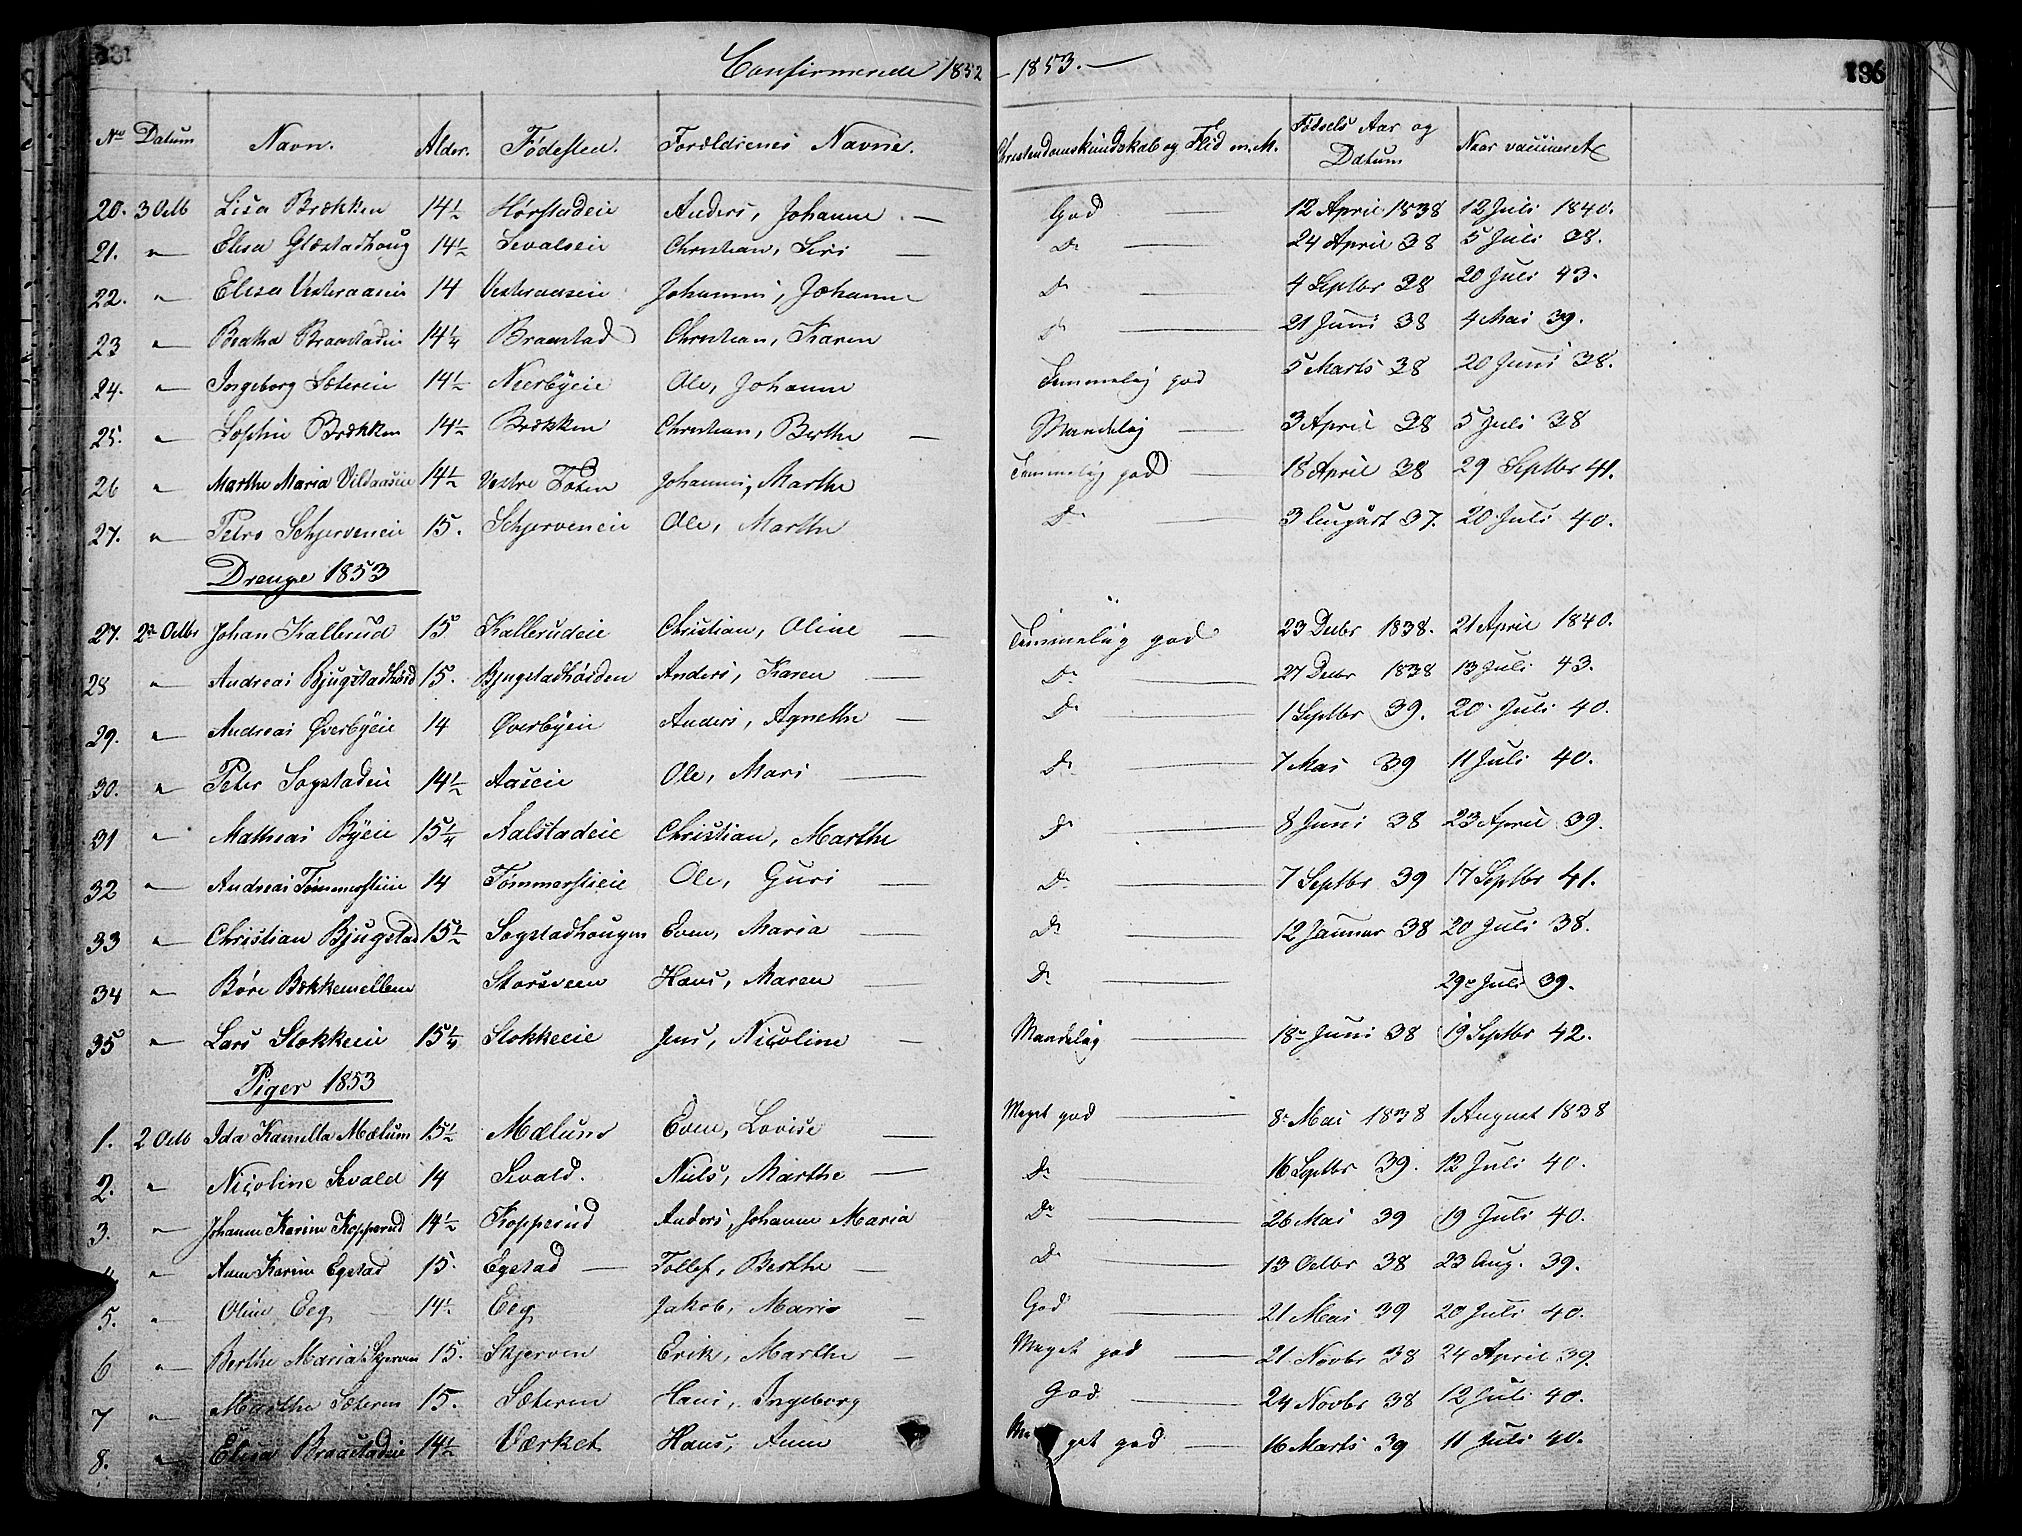 Confirmerede 1852 – 1853. –
136
No Datum Navn. Alder. Fødested. Forældrenes Navne. Christendomskundskab og Flid m. M. Fødsels Aar og Datum Naar vaccineret
20. 3 Octb Lisa Brækken 14½ Hørstadeie Anders, Johanne – God — 12 April 1838 12 Juli 1840.
21. " Elisa Glæstadhoug 14½ Sevalseie Christian, Siri — Do 24 April 38 5 Juli 38.
22. " Elisa Vesteraaseie 14 Vesteraaseie Johannes, Johanne Do 4 Septbr 38 20 Juli 43.
23 " Beatha Braastadeie 14¼ Braastad Christian, Karen Do — 21 Juni 38 4 Mai 39.
24. " Ingeborg Sætereie 14½ Neerbyeie Ole, Johanne Temmelig god 5 Marts 38 20 Juni 38.
25. " Sophie Brækken 14½ Brækken Christian, Berthe — Maadelig — 3 April 38 5 Juli 38
26 " Marthe Maria Vildaaseie 14½ Vestre Toten Johannes, Marthe Temmelig god — 18 April 38 29 Septbr 41.
27. " Petro Schjerveneie 15. Schjerveneie Ole, Marthe Do — 3 August 37. 20 Juli 40.
Drenge 1853
27. 2n Octbr Johan Kallerud 15 Kallerudeie Christian, Oline — Temmelig god 23 Decbr 1838. 21 April 1840.
28 " Andreas Bjugstadhøid 15. Bjugstadhøiden Anders, Karen — Do — 27 Decbr 1838 13 Juli 43.
29. " Andreas Øverbyeie 14 Øverbyeie Anders, Agnethe — Do — 1 Septbr 39. 20 Juli 40.
30. " Peter Sogstadeie 14½ Aaseie Ole, Mari — Do — 7 Mai 39 11 Juli 40.
31 " Mathias Byeie 15¼ Aalstadeie Christian, Marthe Do — 8 Juni 38 23 April 39.
32 " Andreas Tømmerstieie 14 Tømmerstieie Ole, Guri — Do — 7 Septbr 39 17 Septbr 41.
33 " Christian Bjugstad 15½ Sogstadhougen Even, Maria — Do — 12 Januar 38 20 Juli 38.
34 " Børe Bækkemellem Storsveen Hans, Maren — Do — 29 Juli 39.
35 " Lars Stokkeeie 15¼ Stokkeeie Jens, Nicoline — Maadelig — 18 Juni 38 19 Septbr 42.
Piger 1853
1. 2 Octb Ida Kamilla Mælum 15½ Mælum Even, Lovise — Meget god — 8 Mai 1838 1 August 1838
2. " Nicoline Sevald 14 Sevald. Niels, Marthe — Do — 16 Septbr 39. 12 Juli 40.
3. " Johanne Karine Kopperud 14½ Kopperud Anders, Johanne Maria Do — 26 Mai 39 19 Juli 40.
" Anne Karine Egstad 15. Egstad — Tollef, Berthe — Do — 13 Octbr 38 23 Aug. 39.
5. " Oline Eeg 14½ Eeg Jakob, Mari — God — 21 Mai 39 20 Juli 40.
6 " Berthe Maria Skjerven 15. Skjerven Erik, Marthe — Meget god — 21 Novbr 38 24 April 39.
7 " Marthe Sæteren 15. Sæteren Hans, Ingeborg God — 24 Novbr 38 12 Juli 40.
8. " Elisa Braastadeie 14½ Værket Hans, Anne Meget god — 16 Marts 39 11 Juli 40.